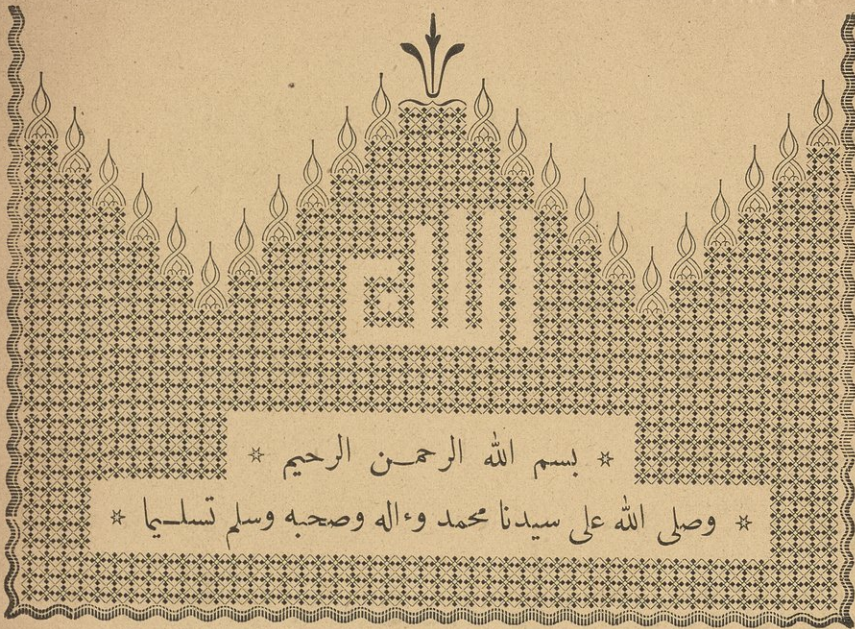 الله
✲ بسم الله الرحمـن الرحيم ✲
✲ وصلى الله على سيدنا محمد وءاله وصحبه وسلم تسلـيما ✲